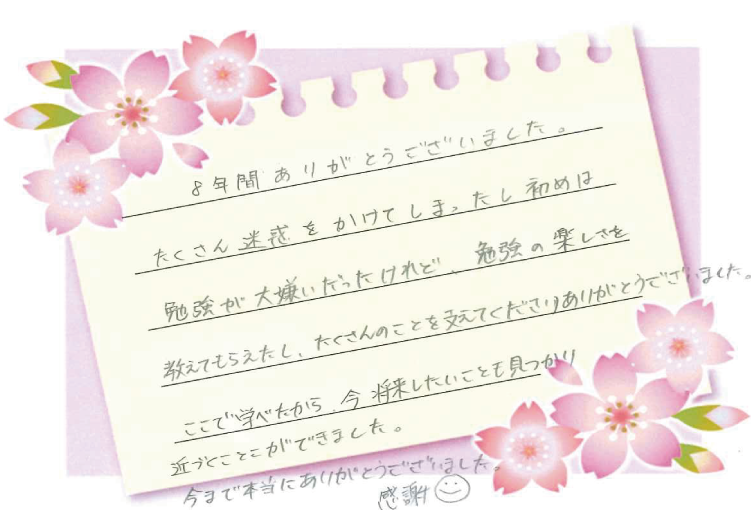 8年間ありがとうございました。
たくさん迷惑をかけてしまったし初めは
勉強が大嫌いだったけれど、勉強の楽しさを
教えてもらえたし、たくさんのことを支えてくださりありがとうございました。
ここで学べたから、今将来したいことも見つかり
近づくことこができました。
今まで本当にありがとうございました。
感謝